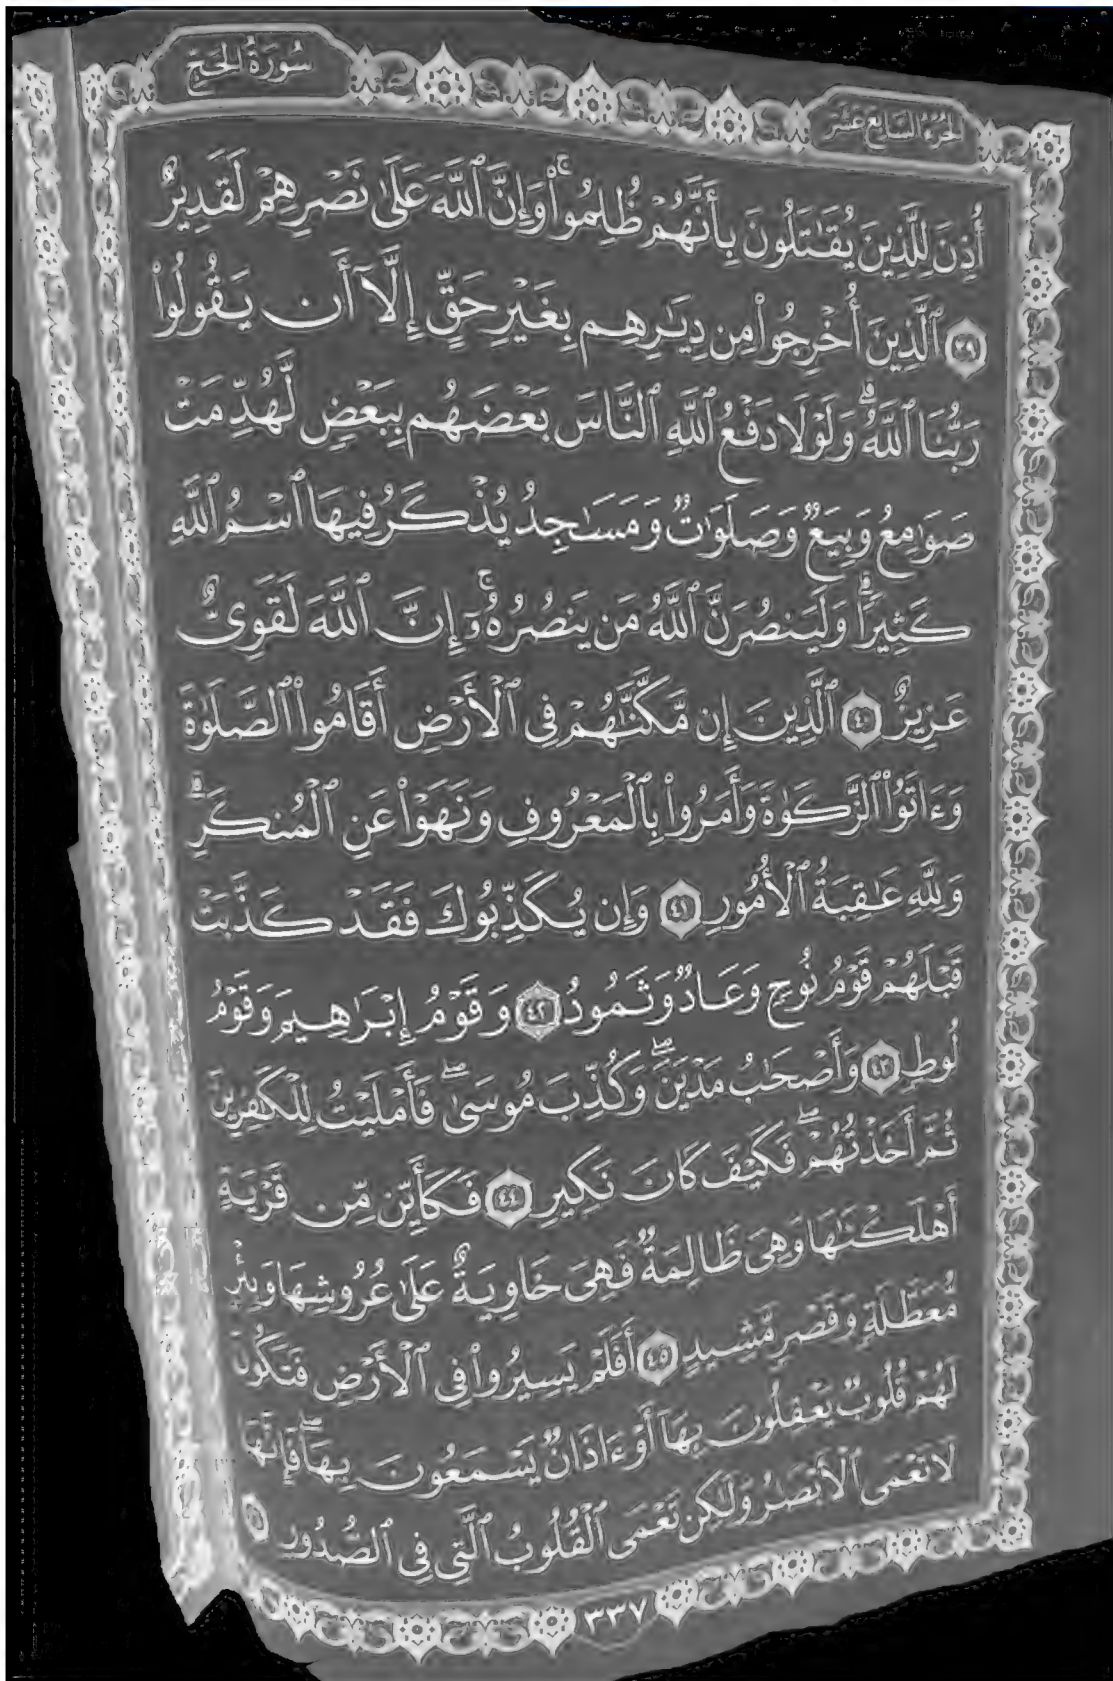 الجزء السابع عشر
سُورَةُ الحَجِّ
أُذِنَ لِلَّذِينَ يُقَٰتَلُونَ بِأَنَّهُمْ ظُلِمُوا۟ ۚ وَإِنَّ ٱللَّهَ عَلَىٰ نَصْرِهِمْ لَقَدِيرٌ
٣٩ ٱلَّذِينَ أُخْرِجُوا۟ مِن دِيَٰرِهِم بِغَيْرِ حَقٍّ إِلَّآ أَن يَقُولُوا۟
رَبُّنَا ٱللَّهُ ۗ وَلَوْلَا دَفْعُ ٱللَّهِ ٱلنَّاسَ بَعْضَهُم بِبَعْضٍ لَّهُدِّمَتْ
صَوَٰمِعُ وَبِيَعٌ وَصَلَوَٰتٌ وَمَسَٰجِدُ يُذْكَرُ فِيهَا ٱسْمُ ٱللَّهِ
كَثِيرًا ۗ وَلَيَنصُرَنَّ ٱللَّهُ مَن يَنصُرُهُۥٓ ۚ إِنَّ ٱللَّهَ لَقَوِىٌّ
عَزِيزٌ ٤٠ ٱلَّذِينَ إِن مَّكَّنَّٰهُمْ فِى ٱلْأَرْضِ أَقَامُوا۟ ٱلصَّلَوٰةَ
وَءَاتَوُا۟ ٱلزَّكَوٰةَ وَأَمَرُوا۟ بِٱلْمَعْرُوفِ وَنَهَوْا۟ عَنِ ٱلْمُنكَرِ ۗ
وَلِلَّهِ عَٰقِبَةُ ٱلْأُمُورِ ٤١ وَإِن يُكَذِّبُوكَ فَقَدْ كَذَّبَتْ
قَبْلَهُمْ قَوْمُ نُوحٍ وَعَادٌ وَثَمُودُ ٤٢ وَقَوْمُ إِبْرَٰهِيمَ وَقَوْمُ
لُوطٍ ٤٣ وَأَصْحَٰبُ مَدْيَنَ ۖ وَكُذِّبَ مُوسَىٰ ۖ فَأَمْلَيْتُ لِلْكَٰفِرِينَ
ثُمَّ أَخَذْتُهُمْ ۖ فَكَيْفَ كَانَ نَكِيرِ ٤٤ فَكَأَيِّن مِّن قَرْيَةٍ
أَهْلَكْنَٰهَا وَهِىَ ظَالِمَةٌ فَهِىَ خَاوِيَةٌ عَلَىٰ عُرُوشِهَا وَبِئْرٍ
مُّعَطَّلَةٍ وَقَصْرٍ مَّشِيدٍ ٤٥ أَفَلَمْ يَسِيرُوا۟ فِى ٱلْأَرْضِ فَتَكُونَ
لَهُمْ قُلُوبٌ يَعْقِلُونَ بِهَآ أَوْ ءَاذَانٌ يَسْمَعُونَ بِهَا ۖ فَإِنَّهَا
لَا تَعْمَى ٱلْأَبْصَٰرُ وَلَٰكِن تَعْمَى ٱلْقُلُوبُ ٱلَّتِى فِى ٱلصُّدُورِ
٣٣٧